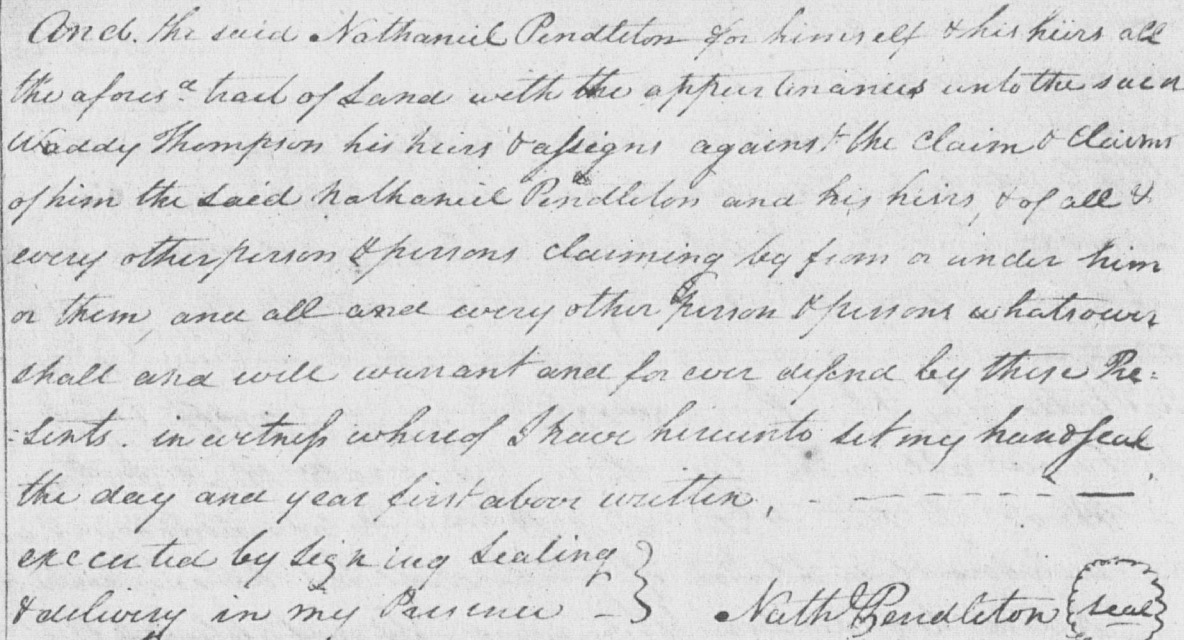 And. the said Nathaniel Pendleton for himself & his heirs all
the afores.d tract of Land with the appurtinances unto the said
Waddy Thompson his heirs & assigns against the claim & claims
of him the said Nathaniel Pendleton and his heirs, & of all &
every other person & persons claiming by from or under him
or them, and all and every other person & persons whatsoever
shall and will warrant and for ever defend by these Pre=
=sents. in witness whereof I have hereunto set my hand & seal
the day and year first above written,
executed by signing sealing
& delivery in my Presence
Nath.l Pendleton seal